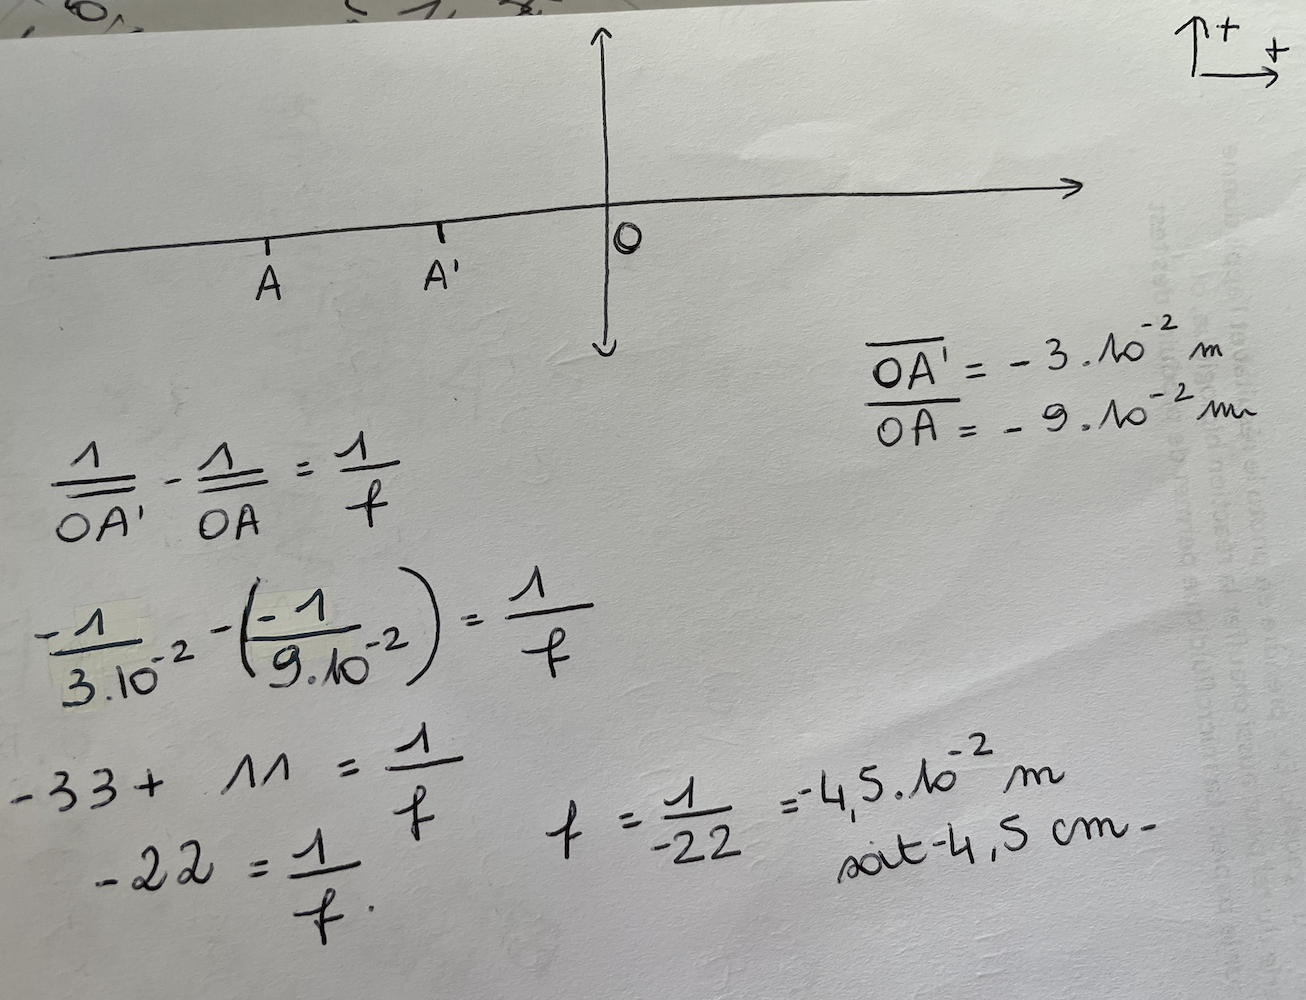 +
+
A A' O
OA' = - 3.10⁻² m
OA = - 9.10⁻² m
1/OA' - 1/OA = 1/f
-1/3.10⁻² - (-1/9.10⁻²) = 1/f
-33 + 11 = 1/f
-22 = 1/f.
f = 1/-22 = -4,5.10⁻² m
soit -4,5 cm-